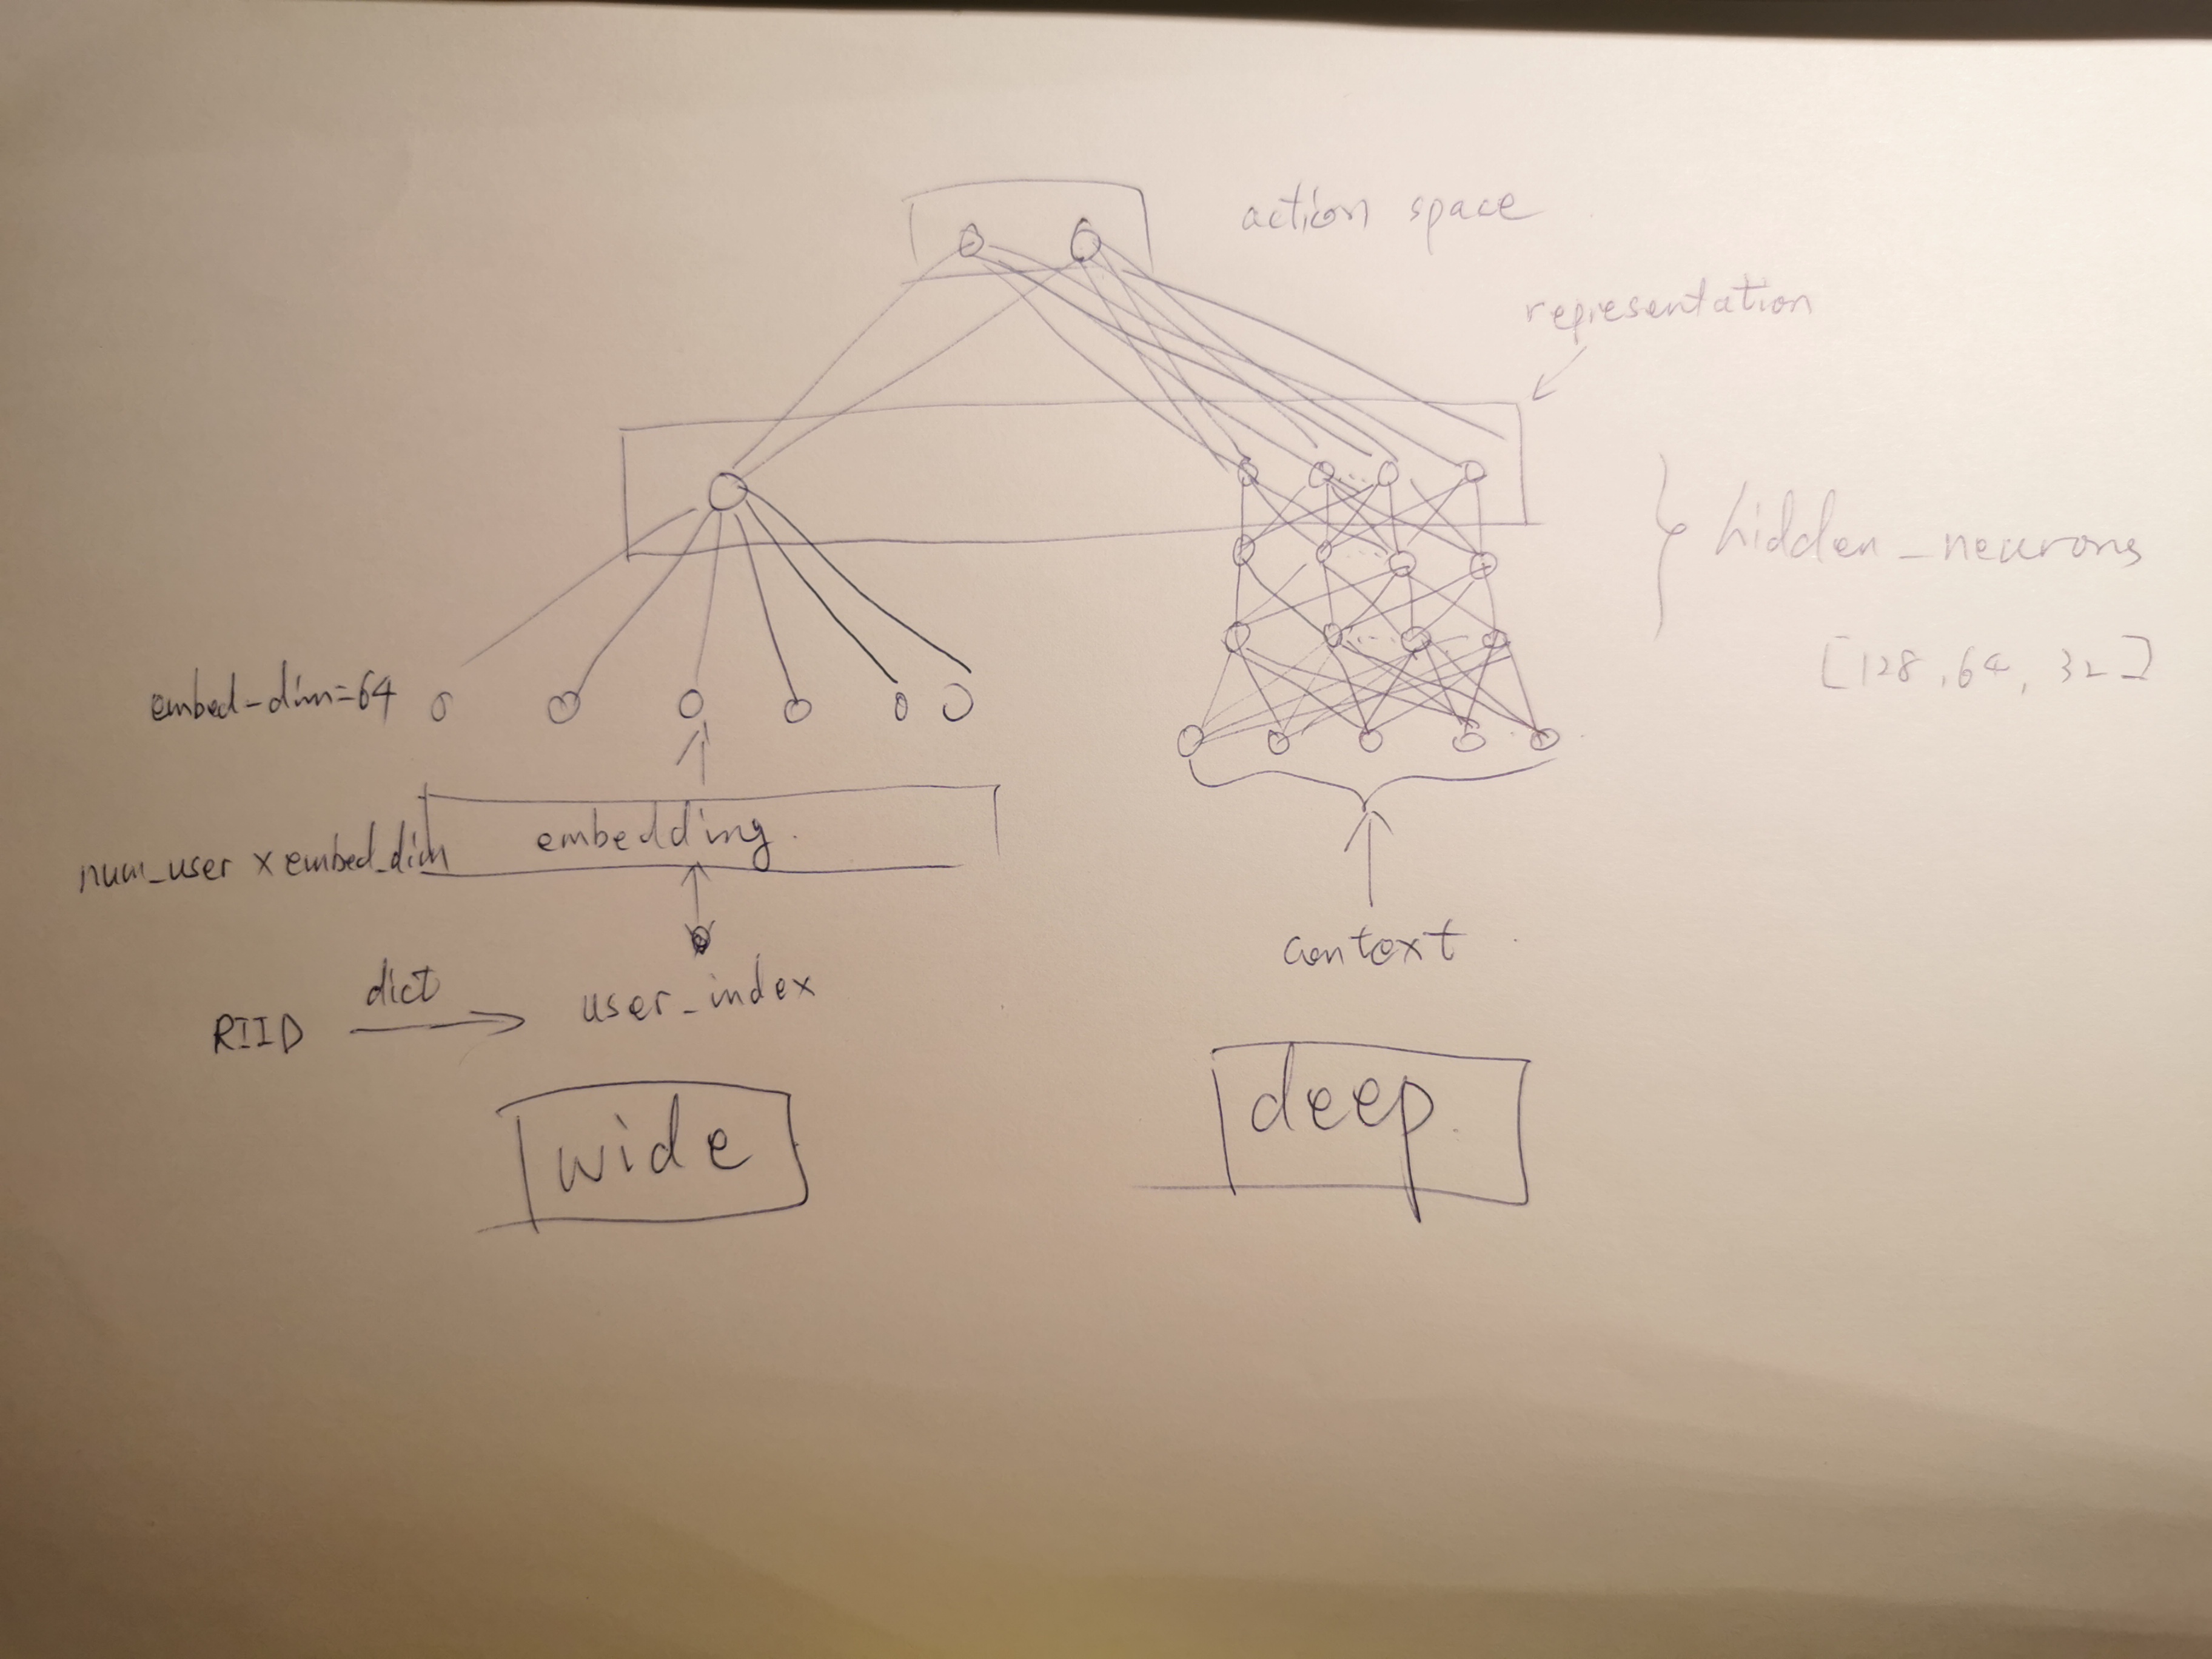 action space
representation
hidden_neurons
[128, 64, 32]
embed-dim=64
num_user x embed_dim
embedding.
dict
RIID
user_index
context
wide
deep.